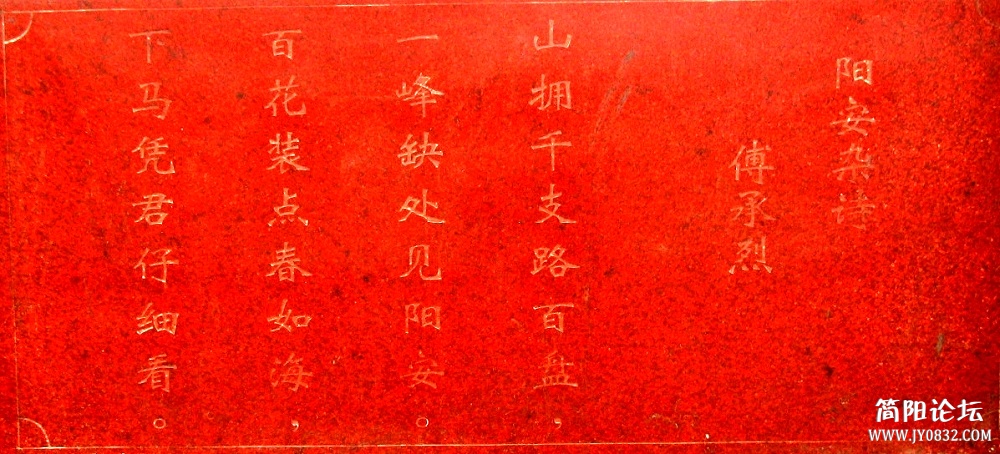 阳安杂诗
傅承烈
山拥千支路百盘，
一峰缺处见阳安。
百花装点春如海，
下马凭君仔细看。
简阳论坛
WWW.JY0832.COM